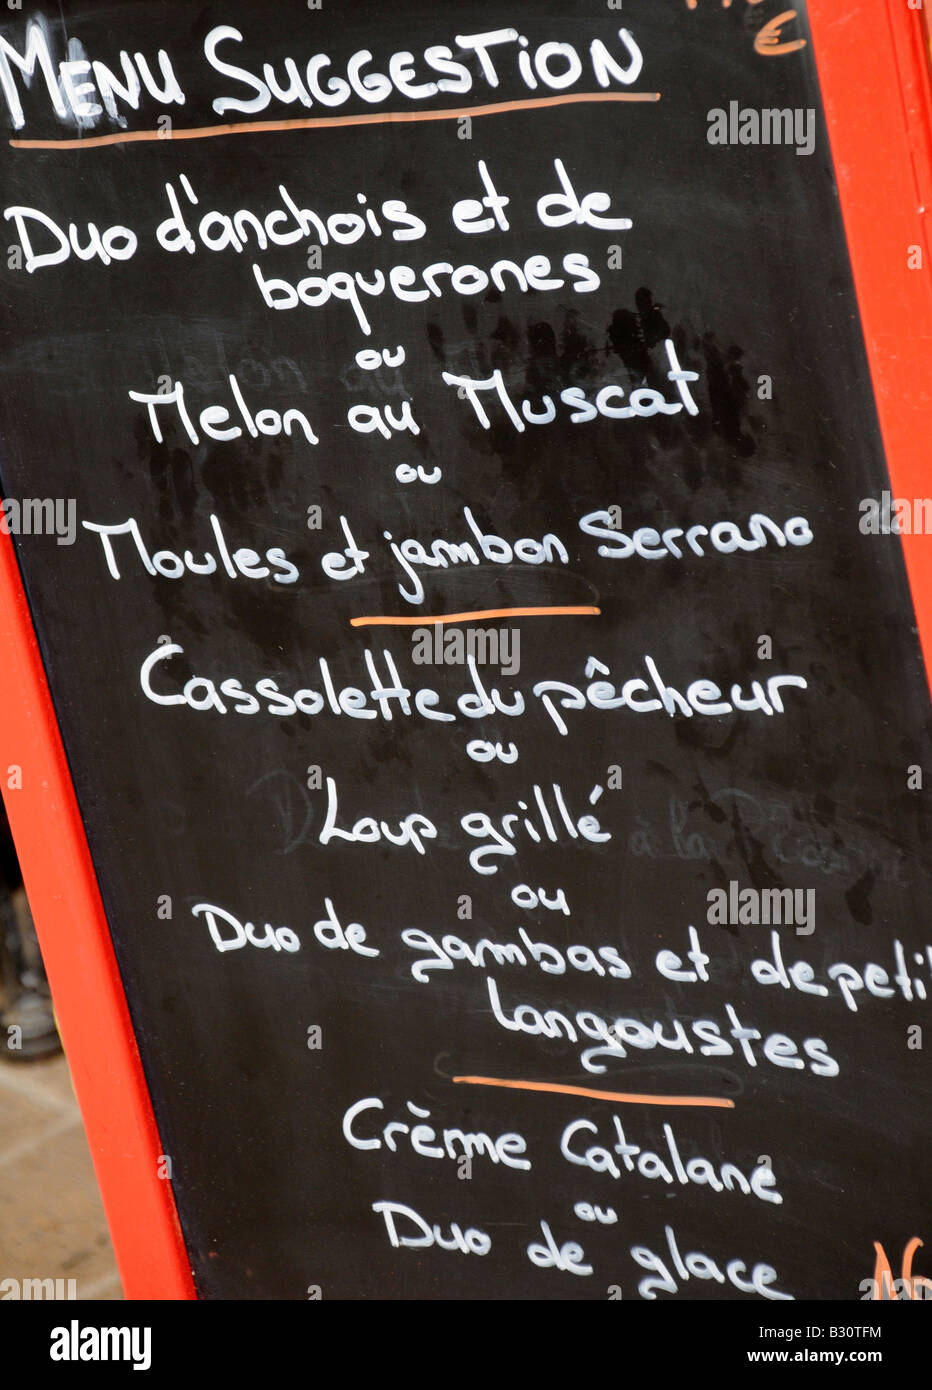 MENU SUGGESTION
Duo d'anchois et de
boquerones
ou
Melon au Muscat
ou
Moules et jambon Serrano
Cassolette du pêcheur
ou
Loup grillé
ou
Duo de gambas et de petit
Langoustes
Crème Catalane
ou
Duo de glace
16
alamy
Image ID: B30TFM
www.alamy.com